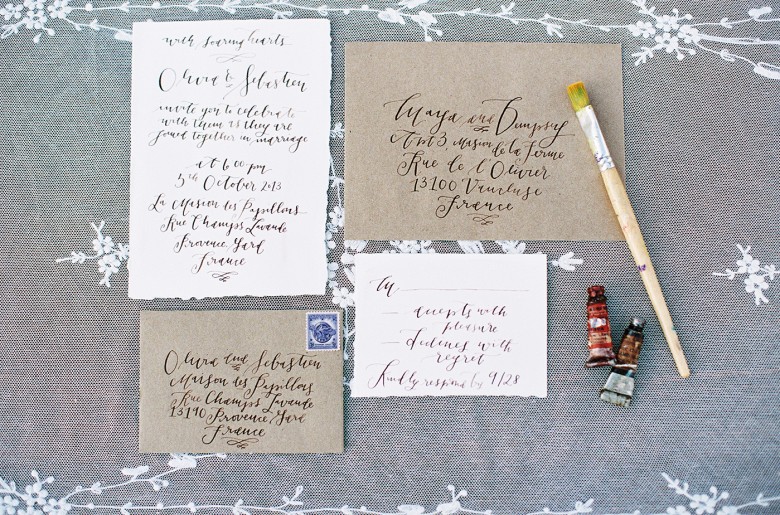 with soaring hearts
Olivia & Sebastien
invite you to celebrate
with them as they are
joined together in marriage
at 6:00 pm
5th October 2013
La Maison des Papillons
Rue Champs Lavande
Provence Gard
France
Maya and Dempsey
Apt 3 Maison de la Ferme
Rue de l'Olivier
13100 Vaucluse
France
M
accepts with
pleasure
declines with
regret
Kindly respond by 9/28
Olivia and Sebastien
Maison des Papillons
Rue Champs Lavande
13190 Provence Gard
France